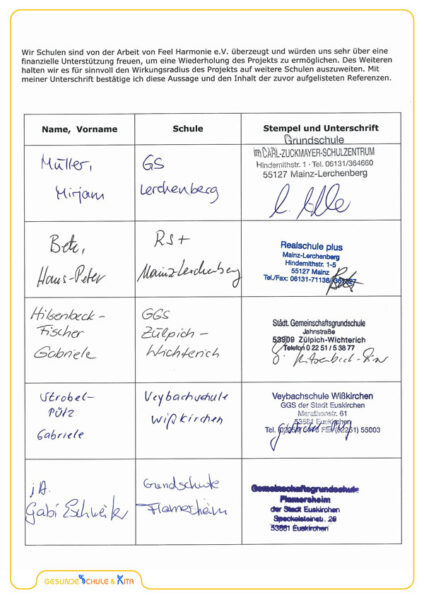 Wir Schulen sind von der Arbeit von Feel Harmonie e.V. überzeugt und würden uns sehr über eine
finanzielle Unterstützung freuen, um eine Wiederholung des Projekts zu ermöglichen. Des Weiteren
halten wir es für sinnvoll den Wirkungsradius des Projekts auf weitere Schulen auszuweiten. Mit
meiner Unterschrift bestätige ich diese Aussage und den Inhalt der zuvor aufgelisteten Referenzen.
Name, Vorname Schule Stempel und Unterschrift
Müller,
Mirjam
GS
Lerchenberg
Grundschule
im CARL-ZUCKMAYER-SCHULZENTRUM
Hindemithstr. 1 · Tel. 06131/364660
55127 Mainz-Lerchenberg
Betz,
Hans-Peter
RS+
Mainz-Lerchenberg
Realschule plus
Mainz-Lerchenberg
Hindemithstr. 1-5
55127 Mainz
Tel./Fax: 06131-71138
Hilsenbeck-
Fischer
Gabriele
GGS
Zülpich-
Wichterich
Städt. Gemeinschaftsgrundschule
Jahnstraße
53909 Zülpich-Wichterich
Telefon 0 22 51 / 5 38 77
Strobel-
Pötz
Gabriele
Veybachschule
Wißkirchen
Veybachschule Wißkirchen
GGS der Stadt Euskirchen
61
53881 Euskirchen
Tel. 55003
i.A.
Gabi
Grundschule
Flamersheim
Gemeinschaftsgrundschule
Flamersheim
der Stadt Euskirchen
53881 Euskirchen
GESUNDE SCHULE & KITA